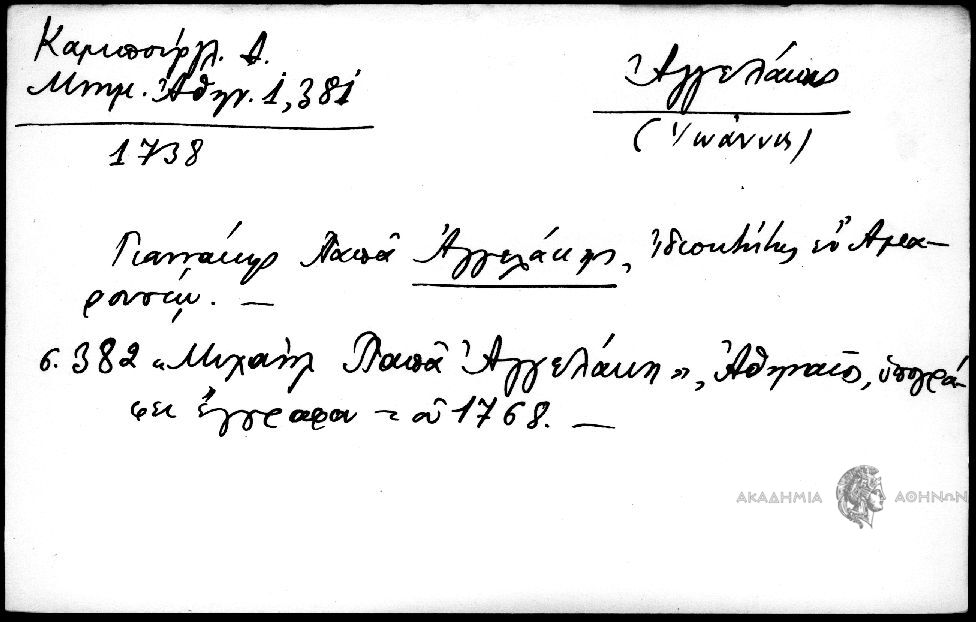 Καμπούργλ. Δ.
Μνημ. Ἀθην. 1, 381
1738
Ἀγγελάκης
(Ἰωάννης)
Γιαννάκης Παπᾶ Ἀγγελάκης, ἰδιοκτήτης ἐν Ἀμα-
ρουσίῳ. —
σ. 382 «Μιχαὴλ Παπᾶ Ἀγγελάκη», Ἀθηναῖος, ὑπογρά-
φει ἔγγραφα τοῦ 1768. —
ΑΚΑΔΗΜΙΑ ΑΘΗΝΩΝ